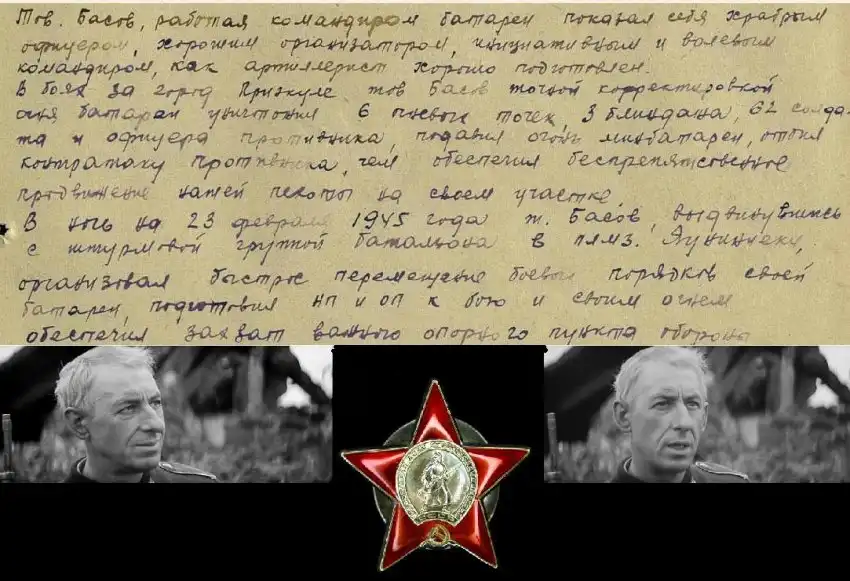 Тов. Басов, работая командиром батареи показал себя храбрым
офицером, хорошим организатором, инициативным и волевым
командиром, как артиллерист хорошо подготовлен.
В боях за город Приэкуле тов Басов точной корректировкой
огня батареи уничтожил 6 огневых точек, 3 блиндажа, 62 солда-
та и офицера противника, подавил огонь минбатареи, отбил
контратаку противника, чем обеспечил беспрепятственное
продвижение нашей пехоты на своем участке.
В ночь на 23 февраля 1945 года т. Басов, выдвинувшись
с штурмовой группой баталиона в
организовал быстрое перемещение боевых порядков своей
батареи, подготовил НП и ОП к бою и своим огнем
обеспечил захват важного опорного пункта обороны